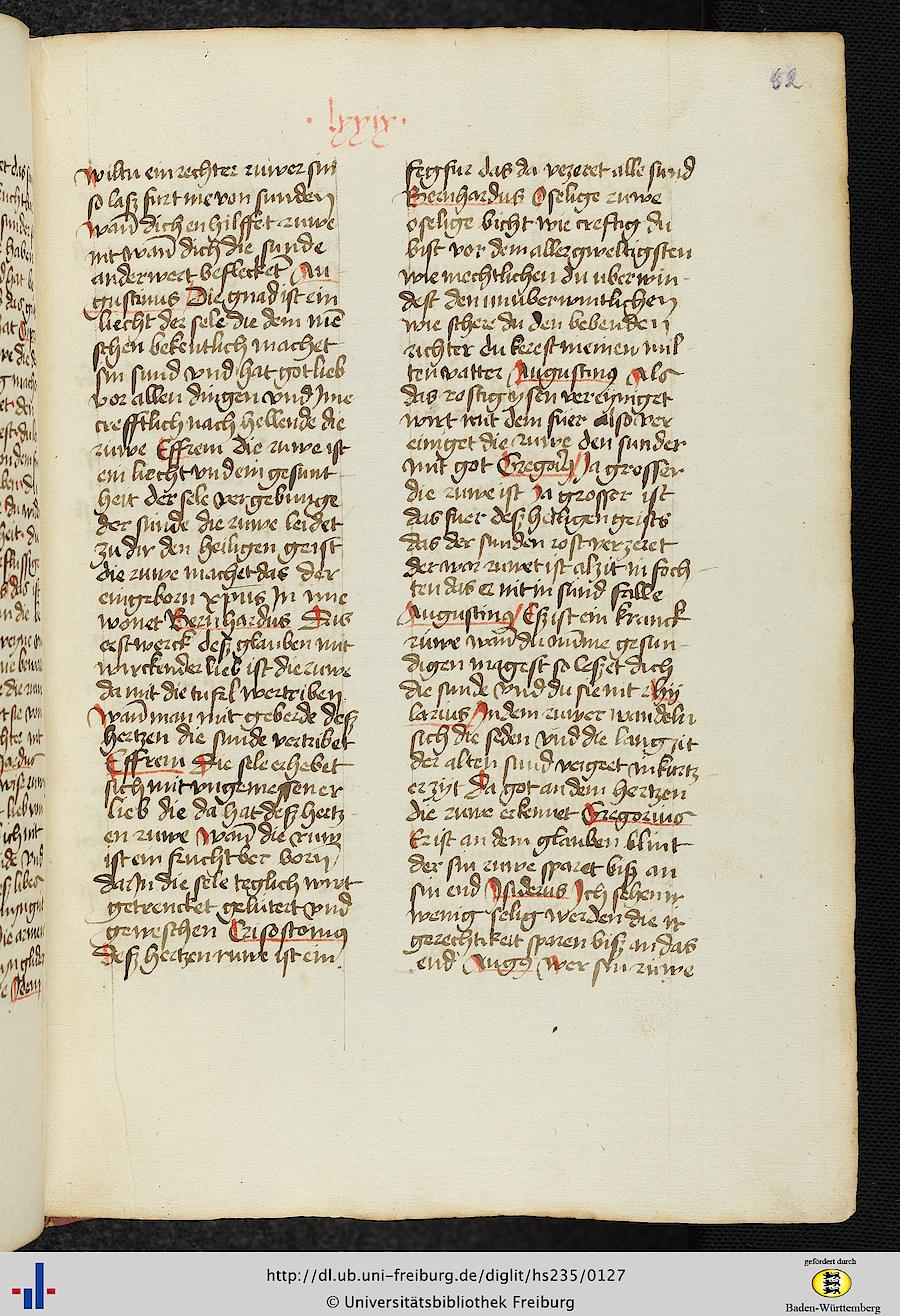 82
· lxxix ·
wiltu ein rechter ruwer sin
so lasz furt me von sunden
wan̄ dich enhilffet ruwe
nit wan̄ dich die sunde
anderwert beflecket Au
gustinus Die gnad ist ein
liecht der sele die dem mē
schen bekentlich machet
sin sund vnd hat got lieb
vor allen dingen vnd Jme
crefftlich nach hellende die
ruwe Effrem die ruwe ist
ein liecht vnd ein gesunt
heit der sele vergebunge
der sunde die ruwe leidet
zu dir den heiligen geist
die ruwe machet das der
eingeborn xpūs In yme
wonet Bernhardus Das
erst werck desz glauben mit
wirckender lieb ist die ruwe
da mit die tufel vertriben
wan̄ man mit geberde desz
hertzen die sunde vertribet
Effrem Die sele erhebet
sich mit vngemessener
lieb die da hat desz hertz
en ruwe wan̄ die ruw
ist ein fruchtber born
dar In die sele teglich wirt
getrencket gelutert vnd
geweschen Crisostomus
desz hertzen ruwe ist ein
fegfur das da verzeret alle sund
Bernhardus O selige ruwe
o selige bicht wie creftig du
bist vor dem aller gweltigsten
wie mechtlichen du uberwin
dest den unuberwintlichen
wie schere du den bebenden
richter du kerest in einen mil
ten vatter Augustinus Als
das rostig ysen vereyniget
wirt mit dem fuer Also ver
einiget die ruwe den sunder
mit got Gregoriꝰ Ja grosser
die ruwe ist Ja grosser ist
das fuer desz heiligen geists
das der sunden rost verzeret
der wor ruwet ist alzit in foch
ten das er nit in sund falle
Augustinꝰ Esz ist ein kranck
ruwe wan̄ du nūme gesun
digen magest so lesset dich
die sunde vnd du sie nit Hy
larius An dem ruwer wandeln
sich die seden vnd die lang zit
der alten sund vergeet in kurtz
er zyt Da got an dem hertzen
die ruwe erkennet Gregorius
Er ist an dem glauben blint
der sin ruwe sparet bisz an
sin end Ysiderus Ich sehen ir
wenig selig werden die ir
gerechtikeit sparen bisz an das
end Augꝰ wer sin ruwe
http://dl.ub.uni-freiburg.de/diglit/hs235/0127
© Universitätsbibliothek Freiburg
gefördert durch
Baden-Württemberg